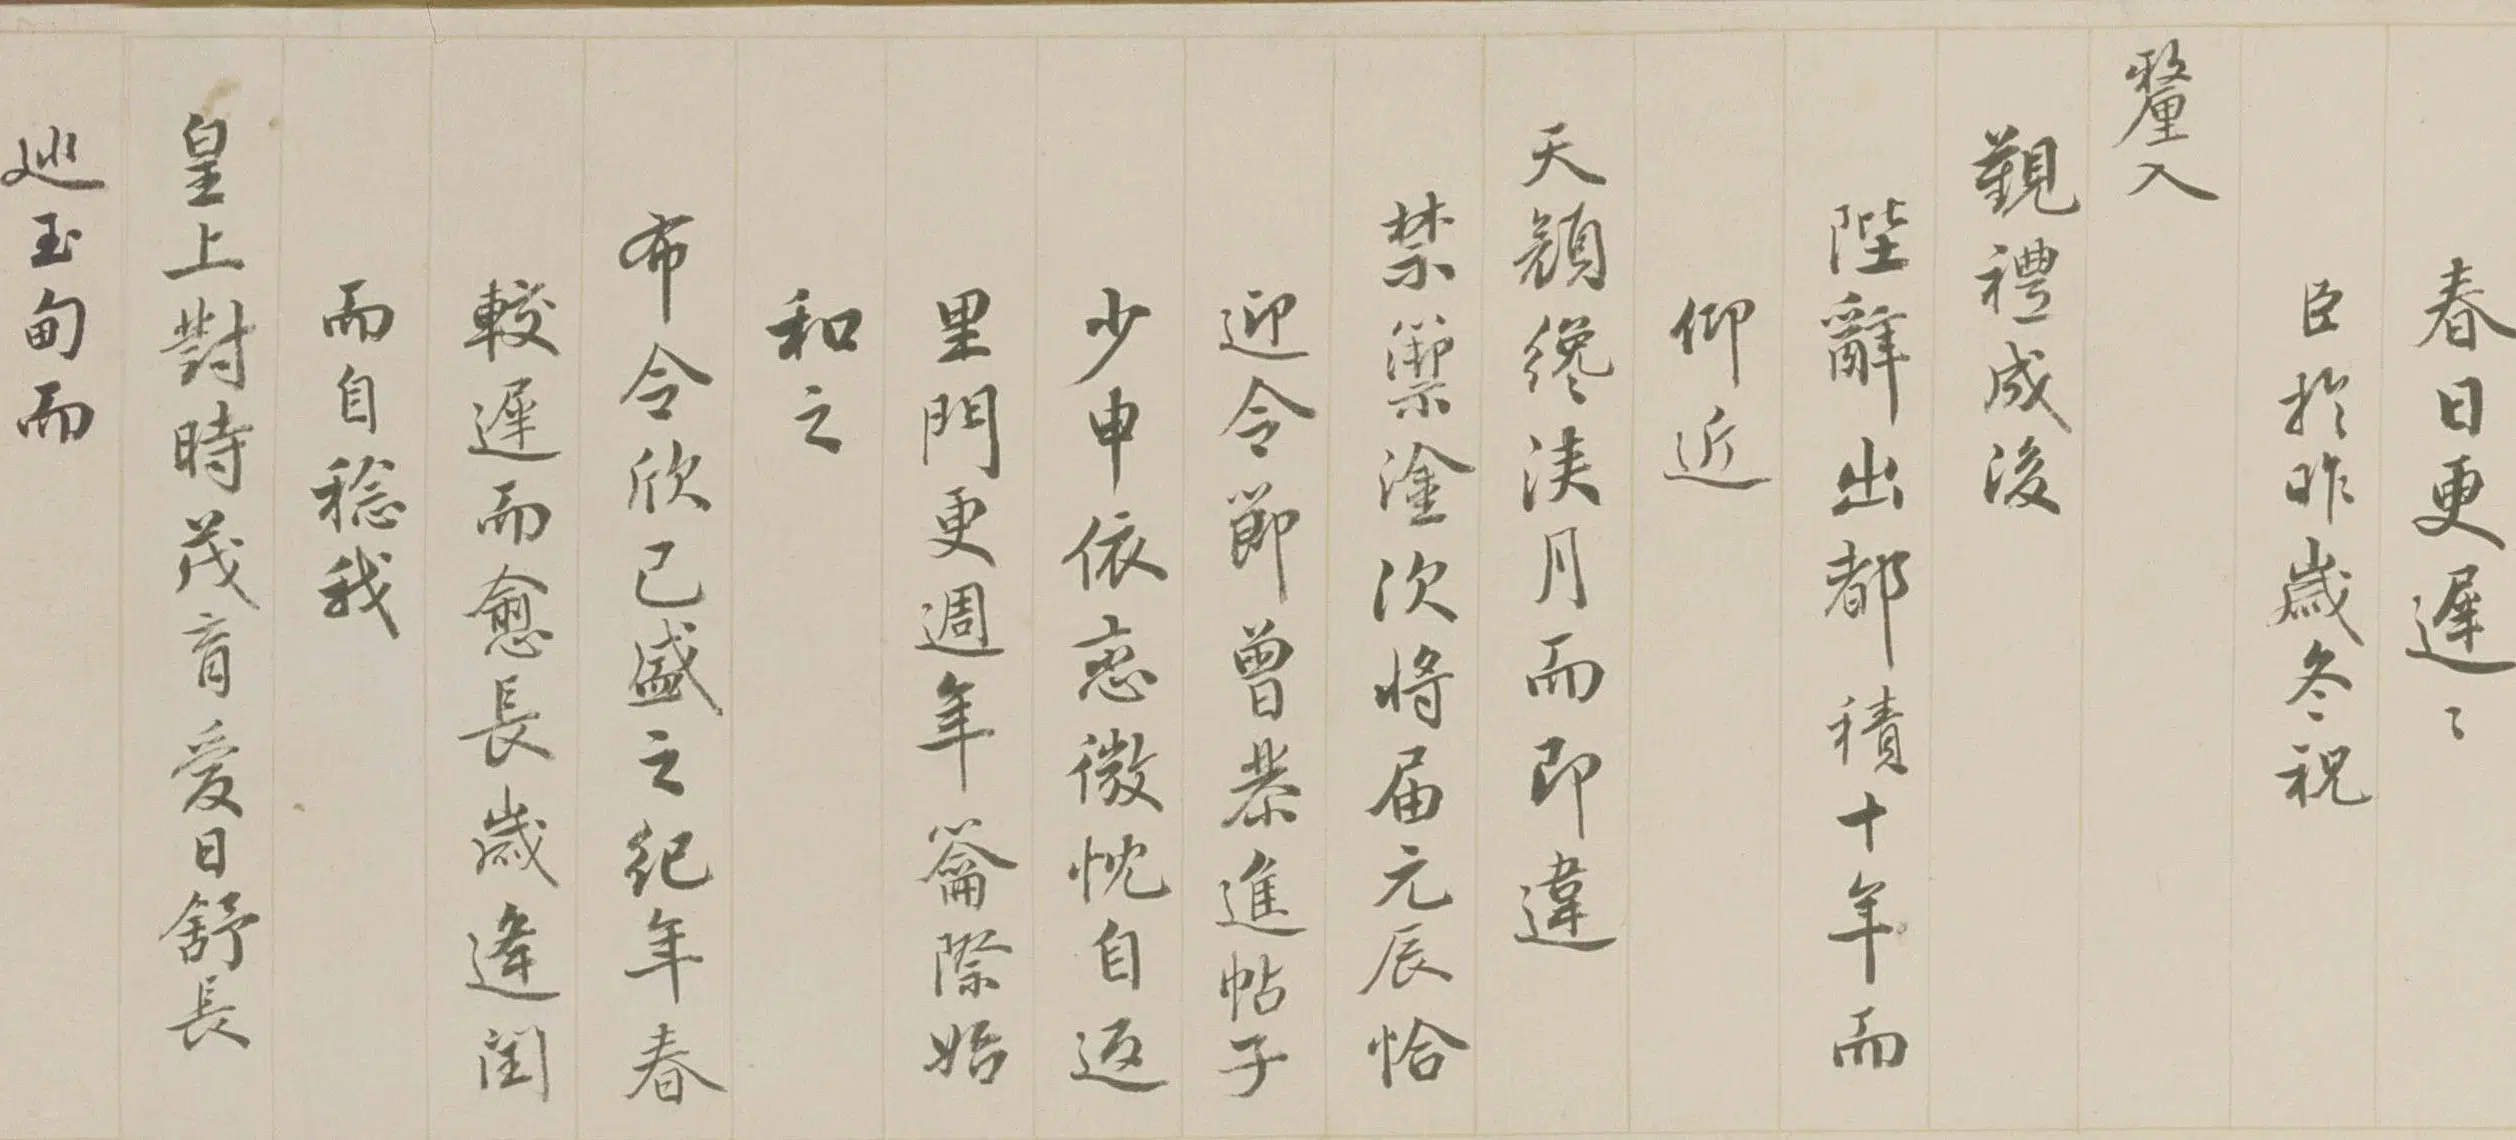 春日更遲遲
臣於昨歲冬祝
釐入
覲禮成後
陛辭出都積十年而
仰近
天顏纔浹月而即違
禁籞塗次將届元辰恰
迎令節曾恭進帖子
少申依戀微忱自返
里門更週年籥際始
和之
布令欣已盛之紀年春
較遲而愈長歲逢閏
而自稔我
皇上對時茂育愛日舒長
巡玉甸而